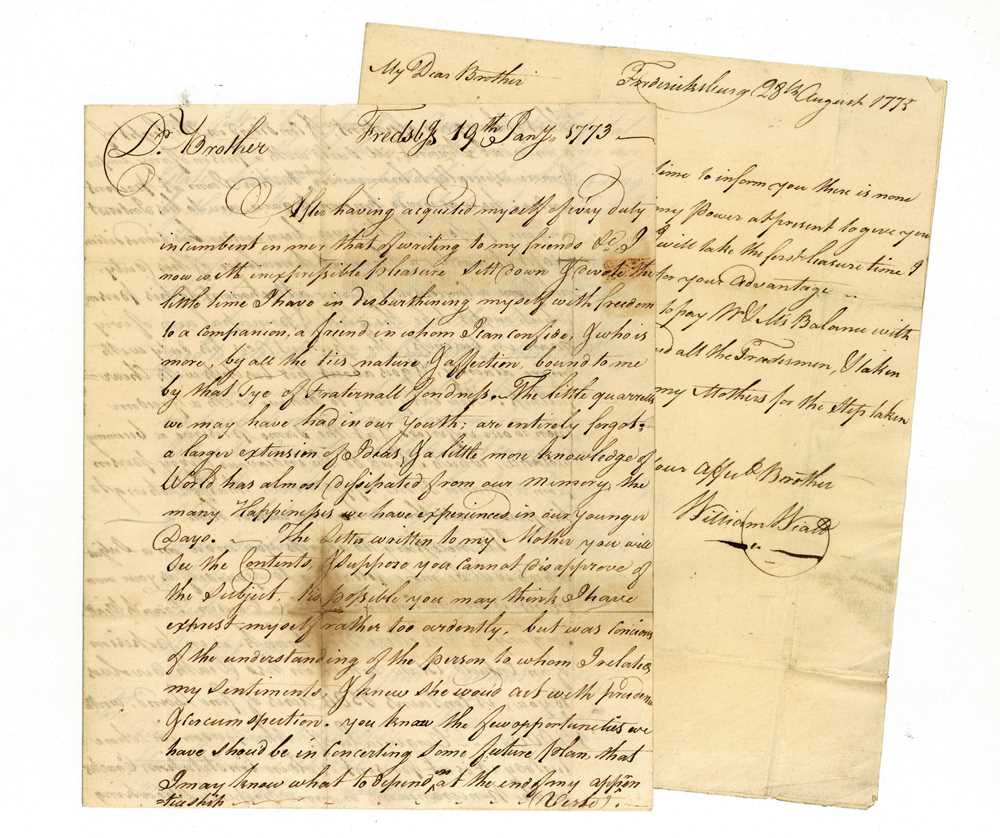 Dr. Brother Fredsbg 19th Jany. 1773 —
After having acquited myself of evry duty
incumbent on me, that of writing to my friends &c. I
now with inexpressible pleasure sett down & devote the
little time I have in disburthining myself with freedom
to a companion, a friend in whom I can confide, & who is
more, by all the ties nature & affection, bound to me
by that Tye of Fraternall fondness. The little quarrells
we may have had in our Youth; are entirely forgot:
a larger extension of Ideas, & a little more knowledge of
World has almost dissipated from our memory, the
many Happinesses we have experienced in our younger
Days. — The Letter written to my Mother you will
see the Contents, & suppose you cannot disapprove of
the subject, 'tis possible you may think I have
exprest myself rather too ardently, but was Concious
of the understanding of the person to whom I relate
my sentiments, & knew she woud act with pruden
& Circumspection. you know the few opportunities we
have shoud be in Concerting some future plan, that
I may know what to depend on at the end of my appren
=ticeship (Verte).
My Dear Brother Fredericksburg 28th August 1775
time to inform you there is none
my Power at present to give you
will take the first leasure time I
for your Advantage —
to pay Balance with
all the Tradesmen, & taken
my Mothers for the Step taken
our Affect. Brother
William Wiatt